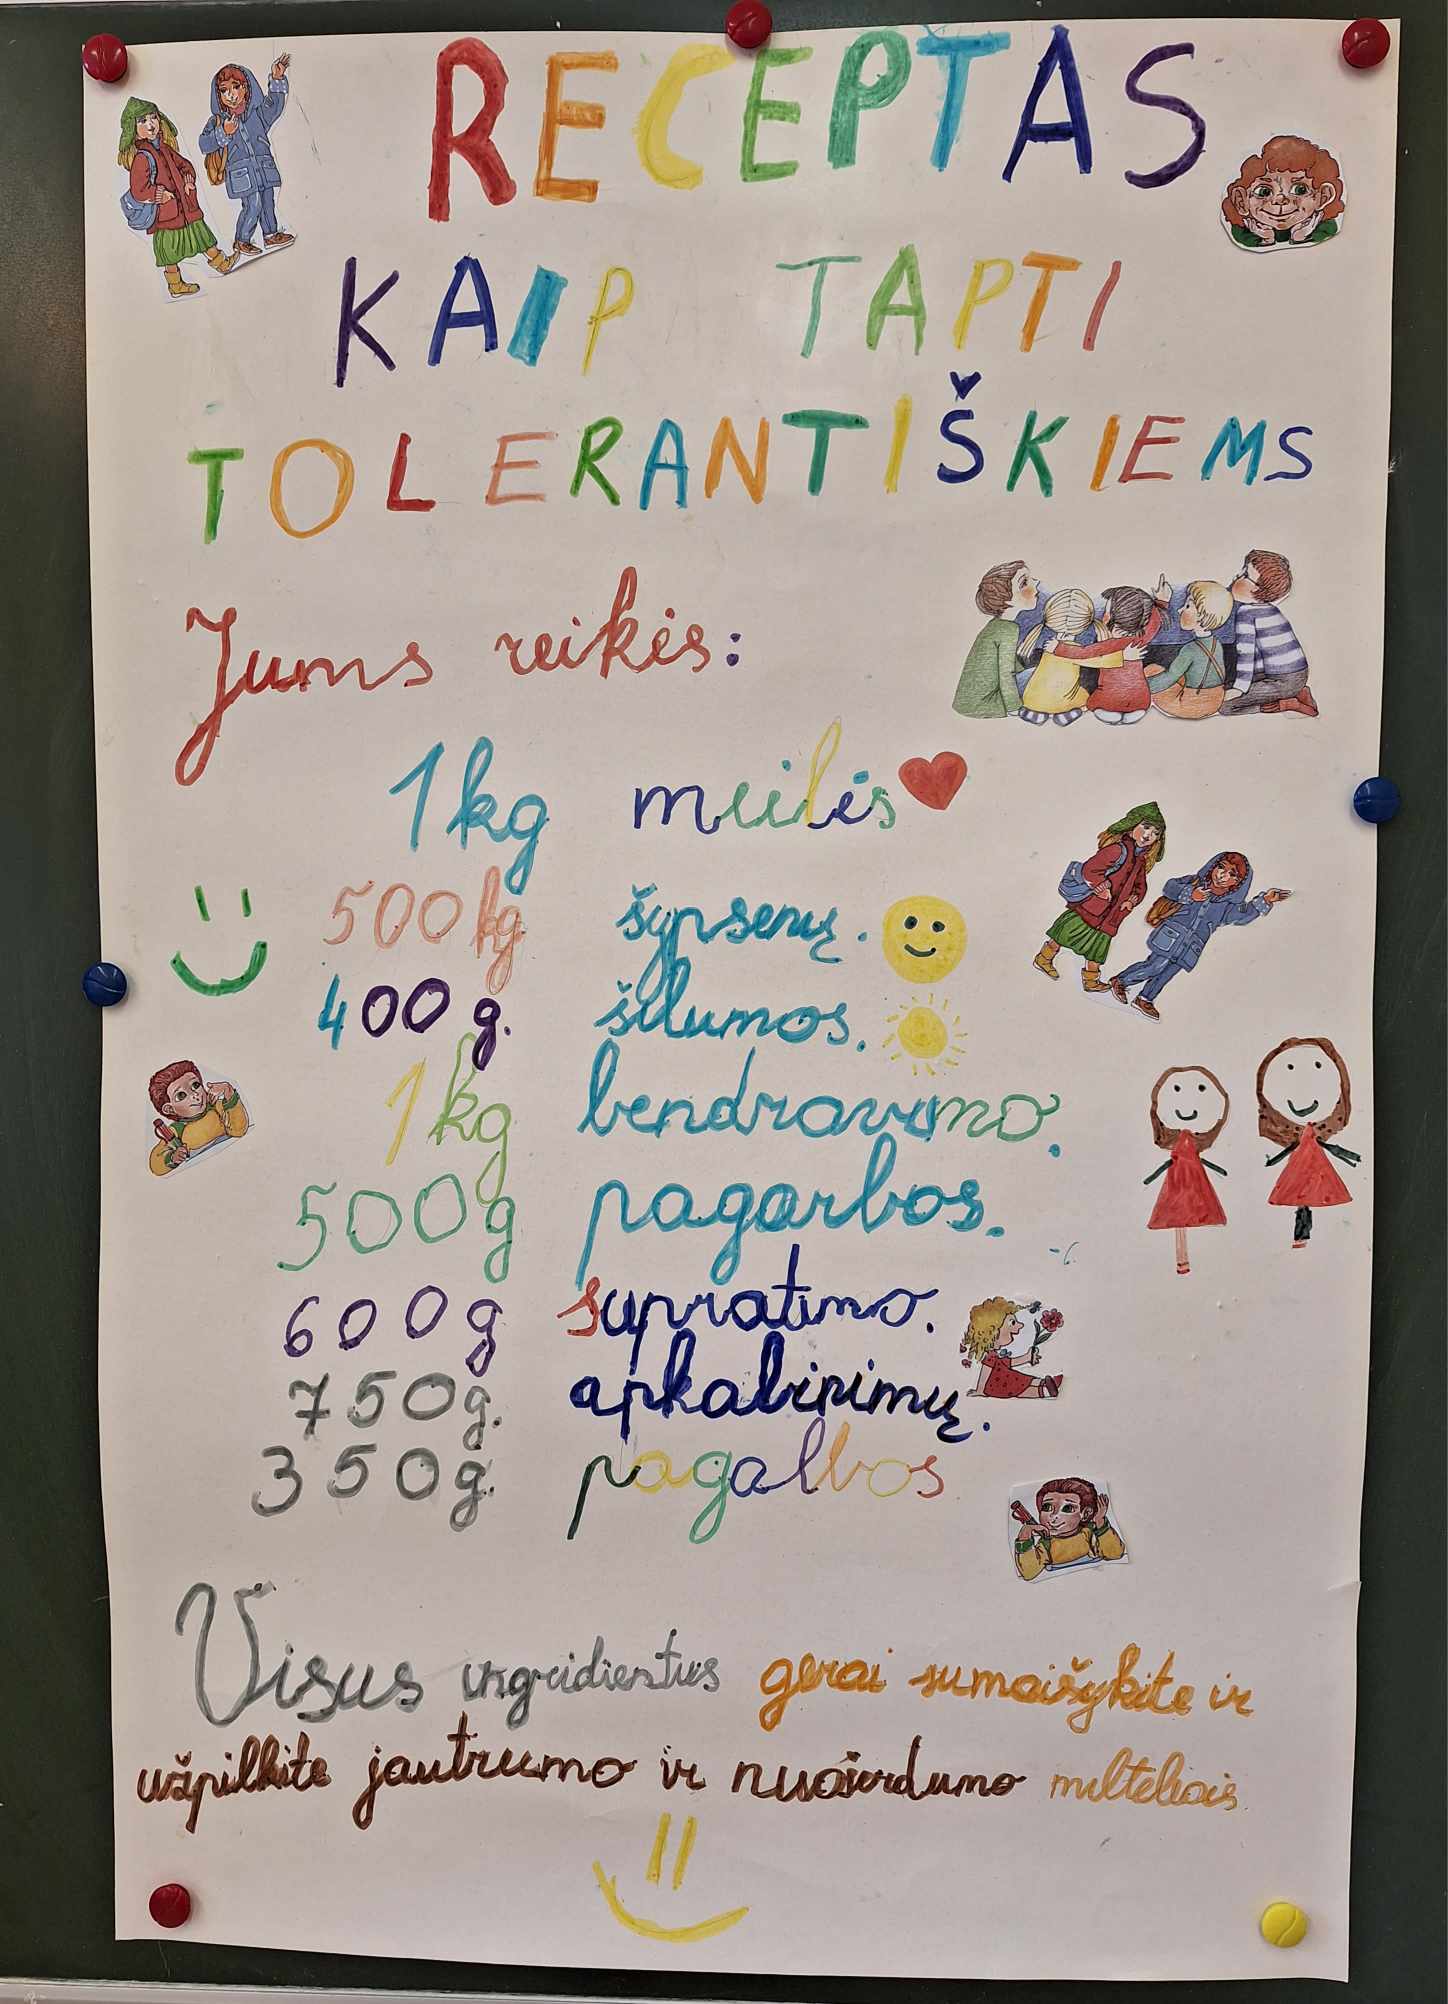 RECEPTAS
KAIP TAPTI
TOLERANTIŠKIEMS
Jums reikės:
1kg meilės
500kg šypsenų.
400g. šilumos.
1kg bendravimo.
500g pagarbos.
600g supratimo.
750g. apkabinimų.
350g. pagalbos
Visus ingridientus gerai sumaišykite ir
užpilkite jautrumo ir nuoširdumo milteliais